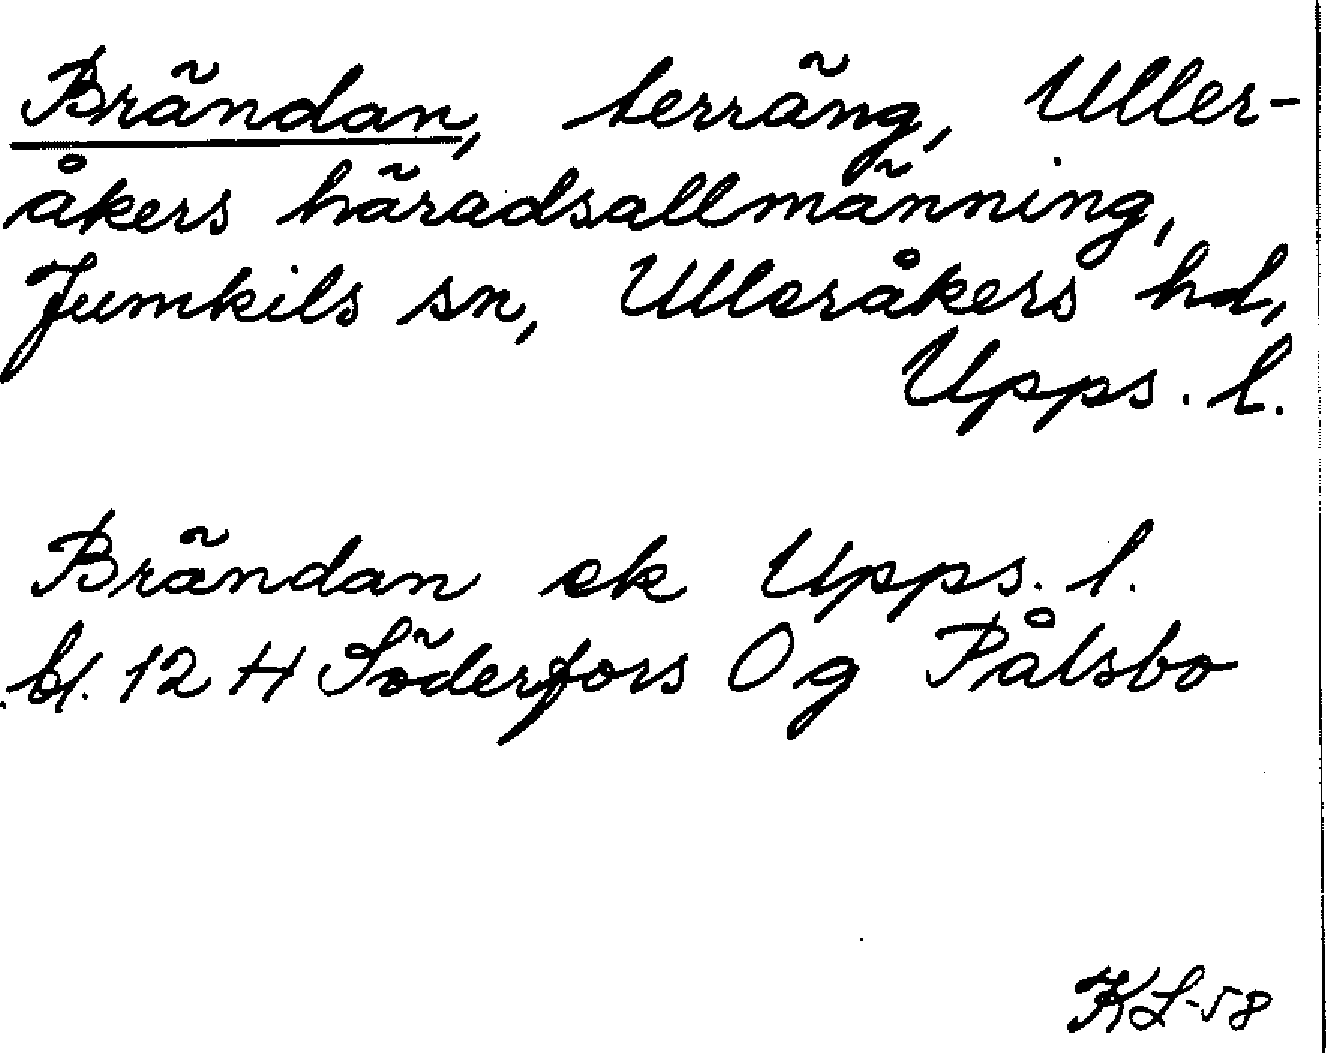 Brändan, terräng, Uller-
åkers häradsallmänning,
Jumkils sn, Ulleråkers hd,
Upps. l.
Brändan ek Upps. l.
bl. 12 H Söderfors Og Pålsbo
KL-58